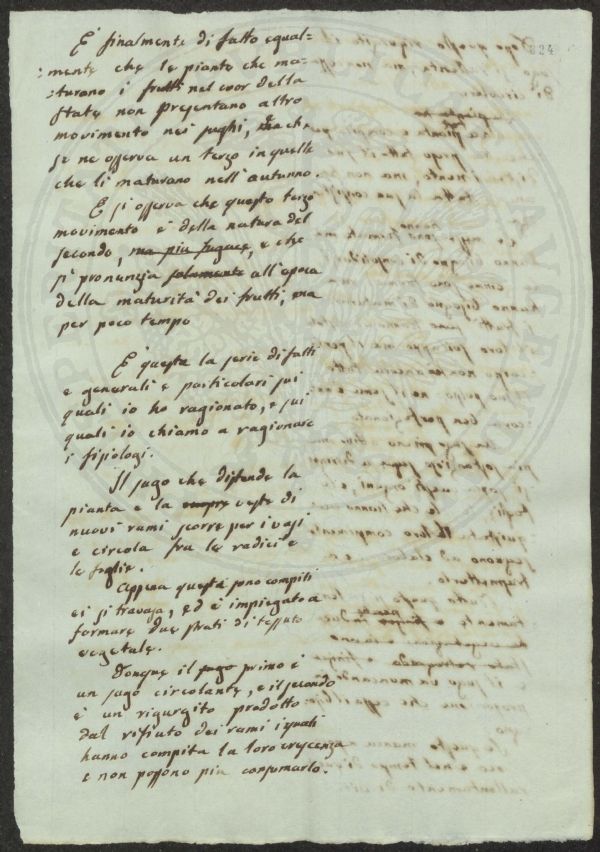 224
È finalmente di fatto equal=
=mente che le piante che ma=
=turano i frutti nel cuor della
state non presentano altro
movimento nei sughi, che
se ne osserva un terzo in quelle
che li maturano nell'autunno.
E si osserva che questo terzo
movimento è della natura del
secondo, ma piu fugace, e che
si pronunzia solamente all'epoca
della maturità dei frutti, ma
per poco tempo
È questa la serie di fatti
e generali e particolari sui
quali io ho ragionato, e sui
quali io chiamo a ragionare
i fisiologi.
Il sugo che distende la
pianta e la veste di
nuovi rami scorre per i vasi
e circola fra le radici e
le foglie.
Appena questa sono compiti
ei si travasa, ed è impiegato a
formare due strati di tessuto
vegetale.
Dunque il sugo primo è
un sugo circolante, e il secondo
è un rigurgito prodotto
dal rifiuto dei rami i quali
hanno compita la loro crescenza
e non possono piu consumarlo.